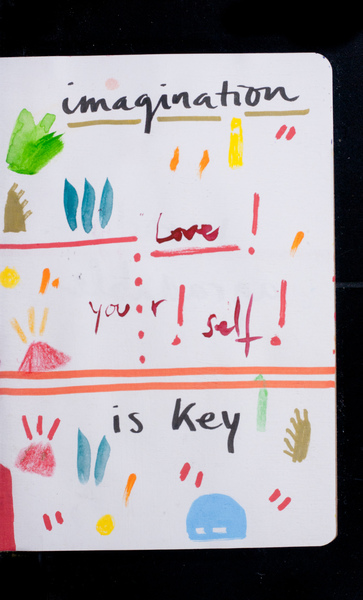 imagination
Love !
your ! self !
is Key